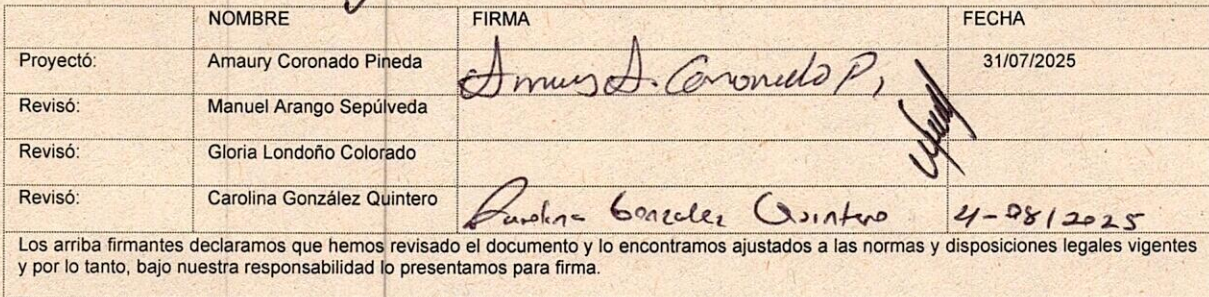 NOMBRE FIRMA FECHA
Proyectó: Amaury Coronado Pineda Amaury A. Coronado P, 31/07/2025
Revisó: Manuel Arango Sepúlveda
Revisó: Gloria Londoño Colorado
Revisó: Carolina González Quintero Carolina González Quintero 4-08/2025
Los arriba firmantes declaramos que hemos revisado el documento y lo encontramos ajustados a las normas y disposiciones legales vigentes
y por lo tanto, bajo nuestra responsabilidad lo presentamos para firma.